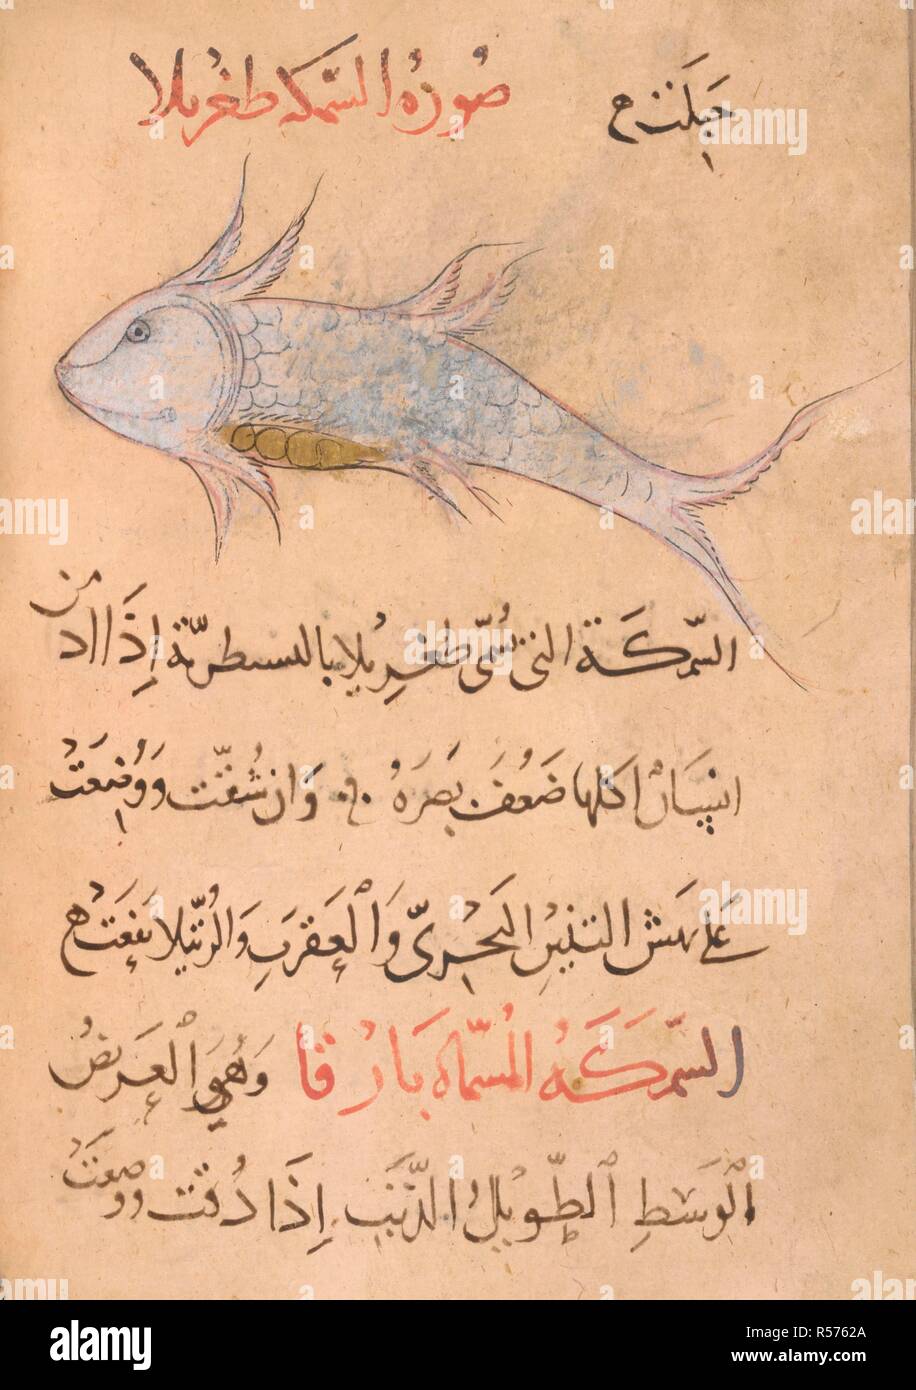 جبلت ه صورة السمكة طغريلا
السمكة التي تسمى طغريلا بالسطرية إذا ادمن
انسان اكلها ضعف بصره وان شقت ووضعت
على نهش التنين البحري والعقرب والرتيلا نفعت ه
السمكة المسماة بارقا وهي العريض
الوسط الطويل الذنب إذا دقت ووضعت
alamy
Image ID: R5762A
www.alamy.com